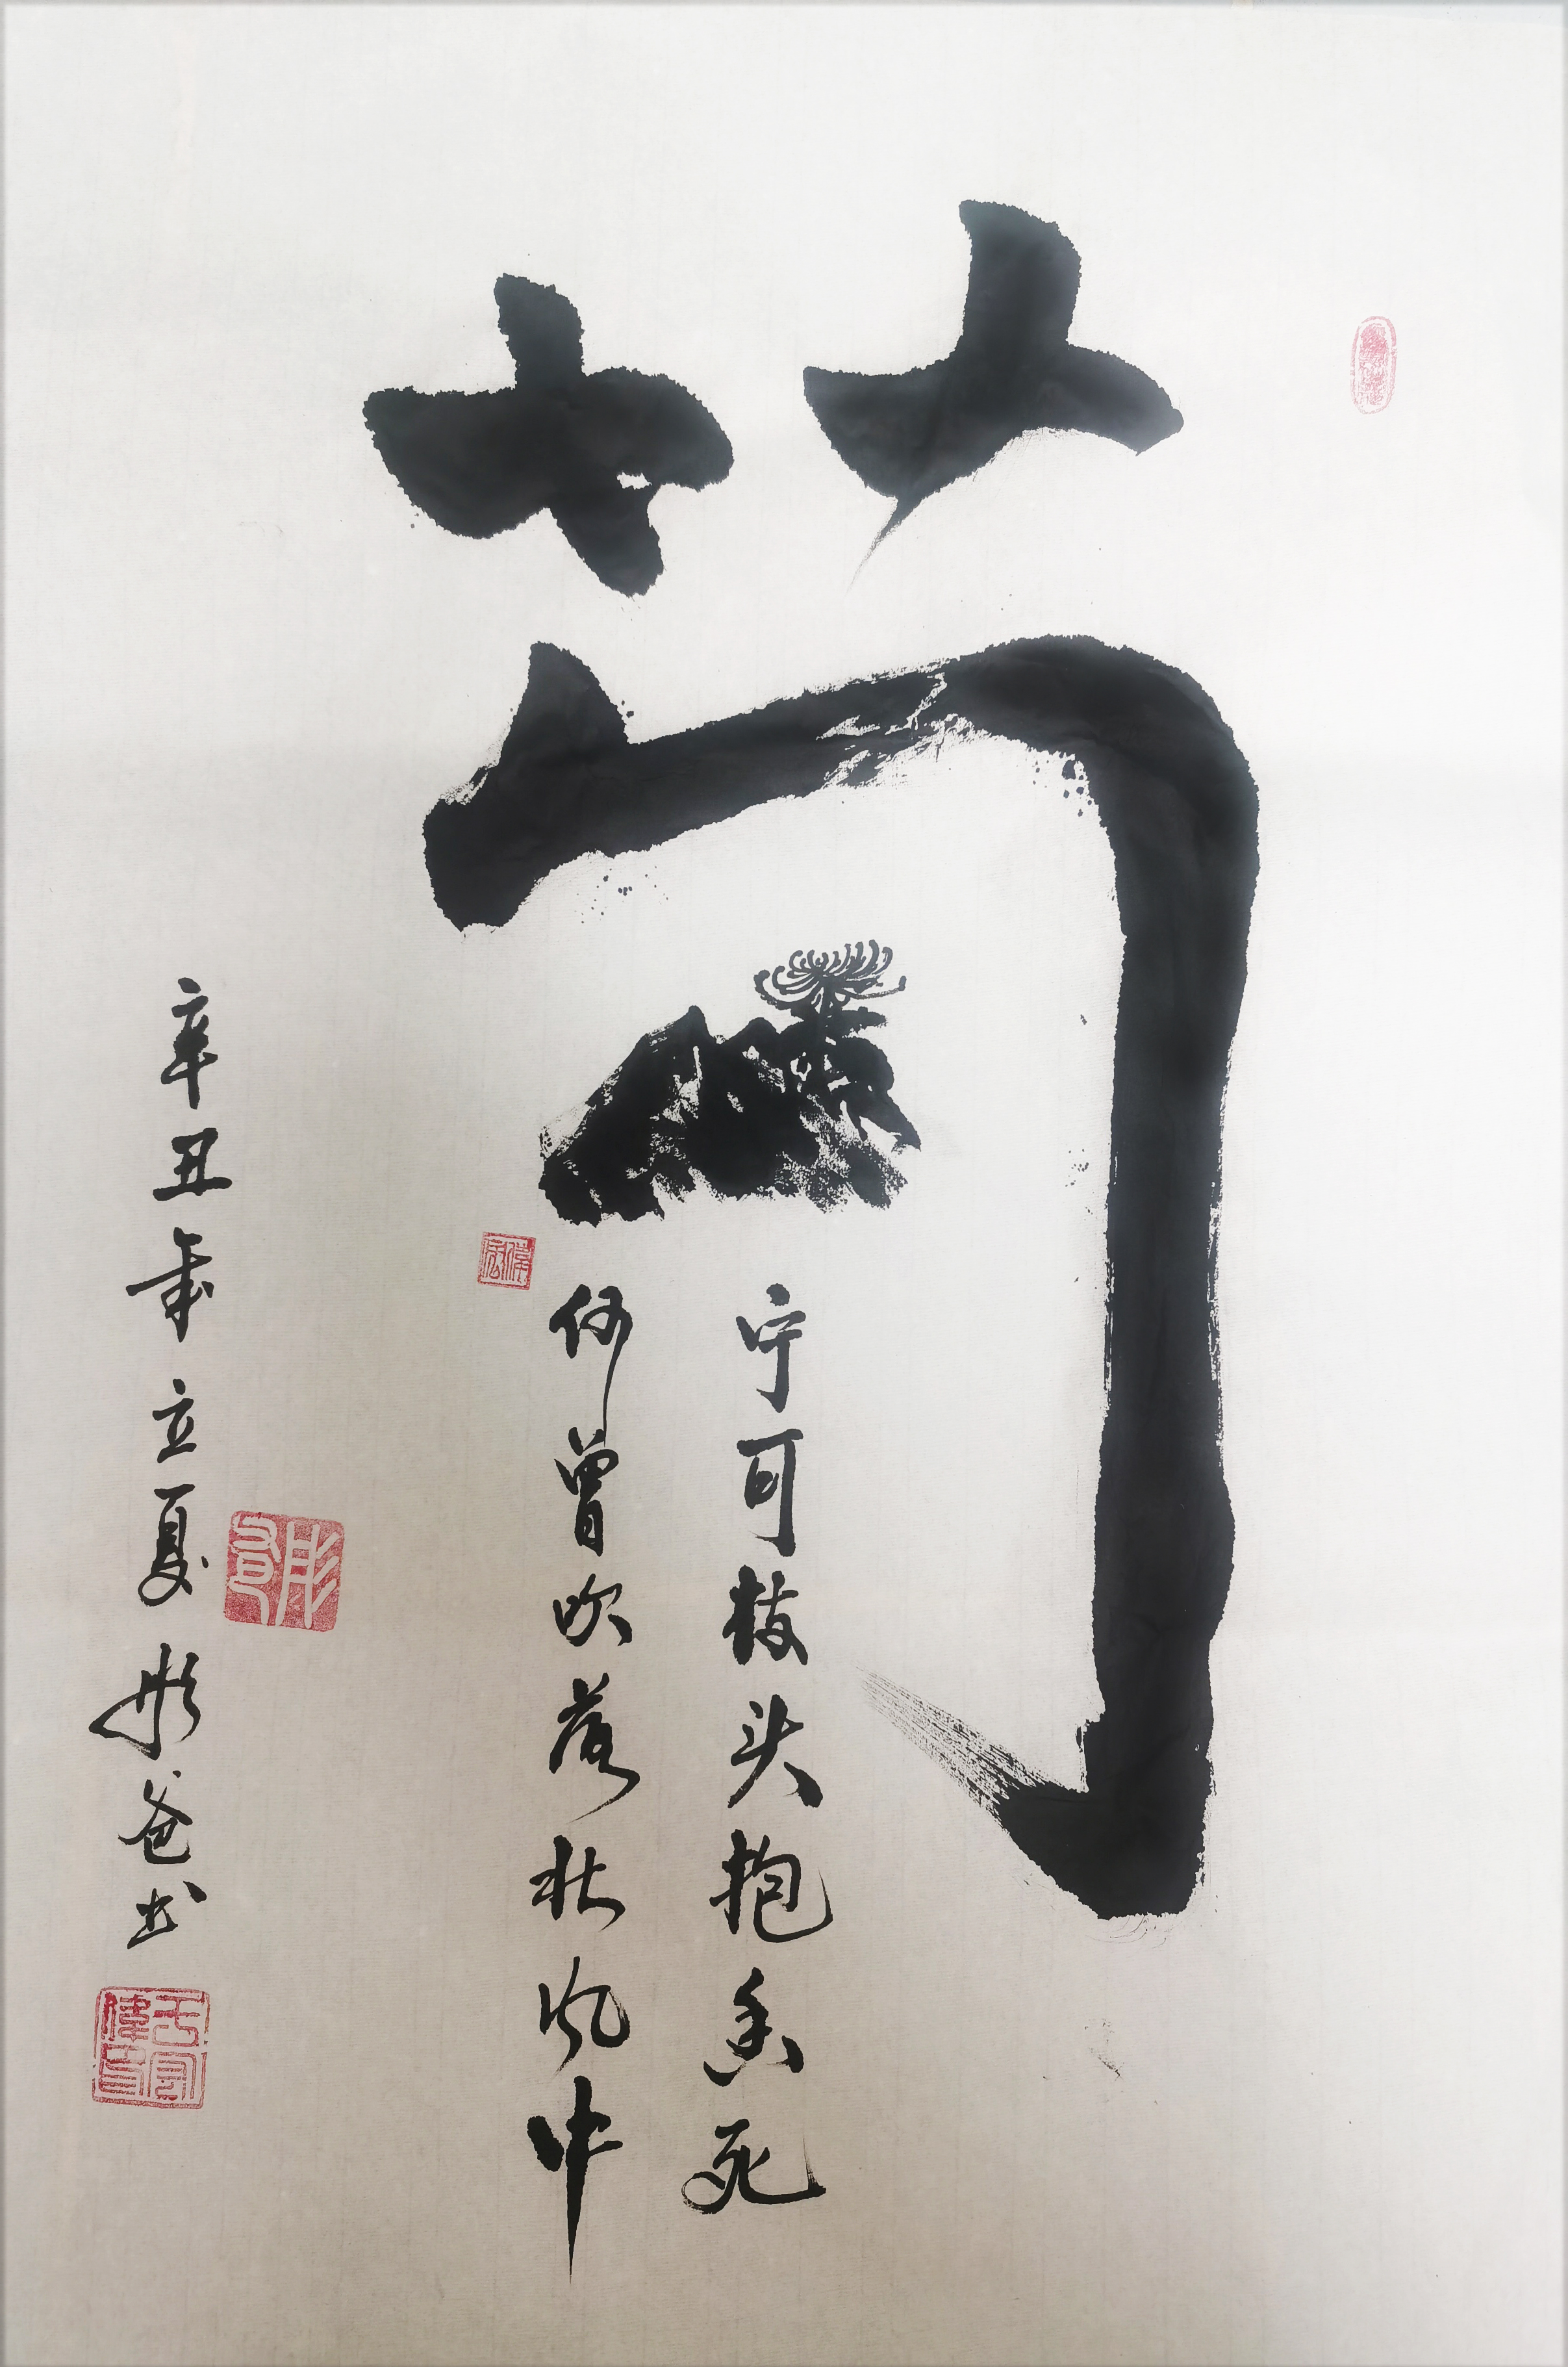 菊
宁可枝头抱香死
何曾吹落北风中
辛丑年立夏彤爸书